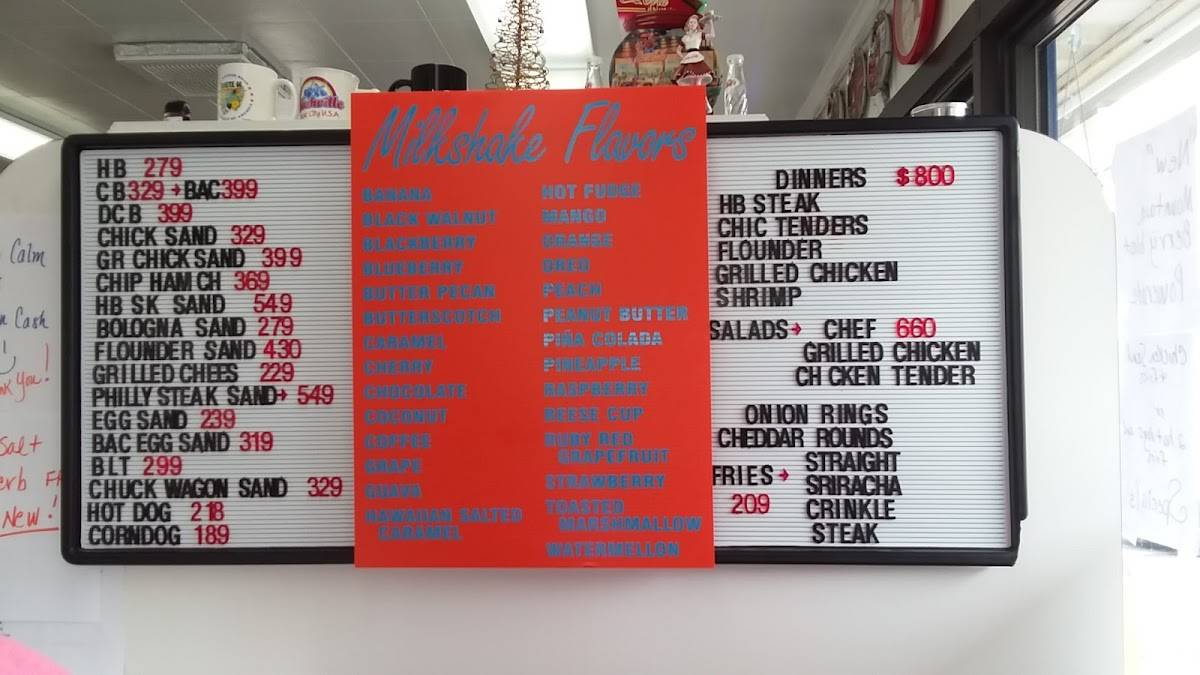 HB 279
CB 329 → BAC 399
DCB 399
CHICK SAND 329
GR CHICK SAND 399
CHIP HAM CH 369
HB SK SAND 549
BOLOGNA SAND 279
FLOUNDER SAND 430
GRILLED CHEES 229
PHILLY STEAK SAND → 549
EGG SAND 239
BAC EGG SAND 319
BLT 299
CHUCK WAGON SAND 329
HOT DOG 218
CORNDOG 189
Milkshake Flavors
BANANA
BLACK WALNUT
BLACKBERRY
BLUEBERRY
BUTTER PECAN
BUTTERSCOTCH
CARAMEL
CHERRY
CHOCOLATE
COCONUT
COFFEE
GRAPE
GUAVA
HAWAIIAN SALTED
CARAMEL
HOT FUDGE
MANGO
ORANGE
OREO
PEACH
PEANUT BUTTER
PIÑA COLADA
PINEAPPLE
RASPBERRY
REESE CUP
RUBY RED
GRAPEFRUIT
STRAWBERRY
TOASTED
MARSHMALLOW
WATERMELLON
DINNERS $800
HB STEAK
CHIC TENDERS
FLOUNDER
GRILLED CHICKEN
SHRIMP
SALADS → CHEF 660
GRILLED CHICKEN
CH CKEN TENDER
ONION RINGS
CHEDDAR ROUNDS
FRIES → STRAIGHT
209 SRIRACHA
CRINKLE
STEAK
Calm
Cash
Salt
New!
New
Specials